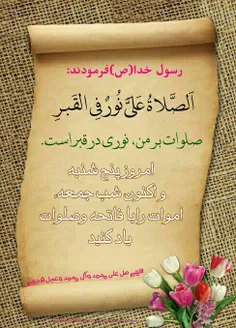 رسول خدا(ص)فرمودند:
اَلصَّلاةُ عَلَیَّ نُورٌ فِی القَبرِ
صلوات بر من، نوری در قبر است.
امروز پنج شنبه
و اکنون شب جمعه،
اموات را با فاتحه و صلوات
یاد کنید
اللهم صل علی محمد وآل محمد وعجل فرجهم